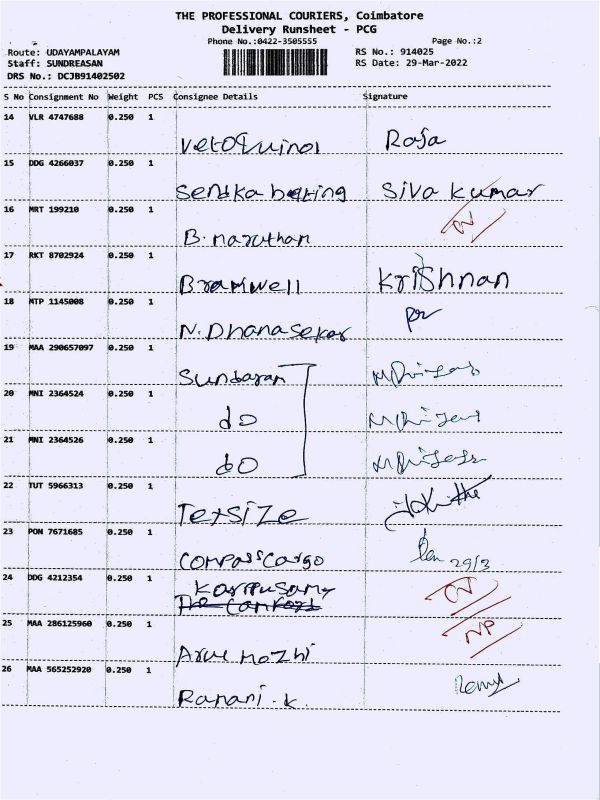 THE PROFESSIONAL COURIERS, Coimbatore
Delivery Runsheet - PCG
Phone No.:0422-3505555 Page No.:2
Route: UDAYAMPALAYAM RS No.: 914025
Staff: SUNDREASAN RS Date: 29-Mar-2022
DRS No.: DCJB91402502
S No Consignment No Weight PCS Consignee Details Signature
14 VLR 4747688 0.250 1
Vetoquinol Raja
15 DDG 4266037 0.250 1
Siva kumar
16 MRT 199210 0.250 1
B. maruthan
17 RKT 8702924 0.250 1
Bramwell Krishnan
18 MTP 1145008 0.250 1
N. Dhanasekar
19 MAA 290657097 0.250 1
Sundaran
20 MNI 2364524 0.250 1
do
21 MNI 2364526 0.250 1
do
22 TUT 5966313 0.250 1
Texsize
23 PON 7671685 0.250 1
Compass Cargo 29/3
24 DDG 4212354 0.250 1
Karppusamy
25 MAA 286125960 0.250 1
NP
Arul Mozhi
26 MAA 565252920 0.250 1
Ramani. K.